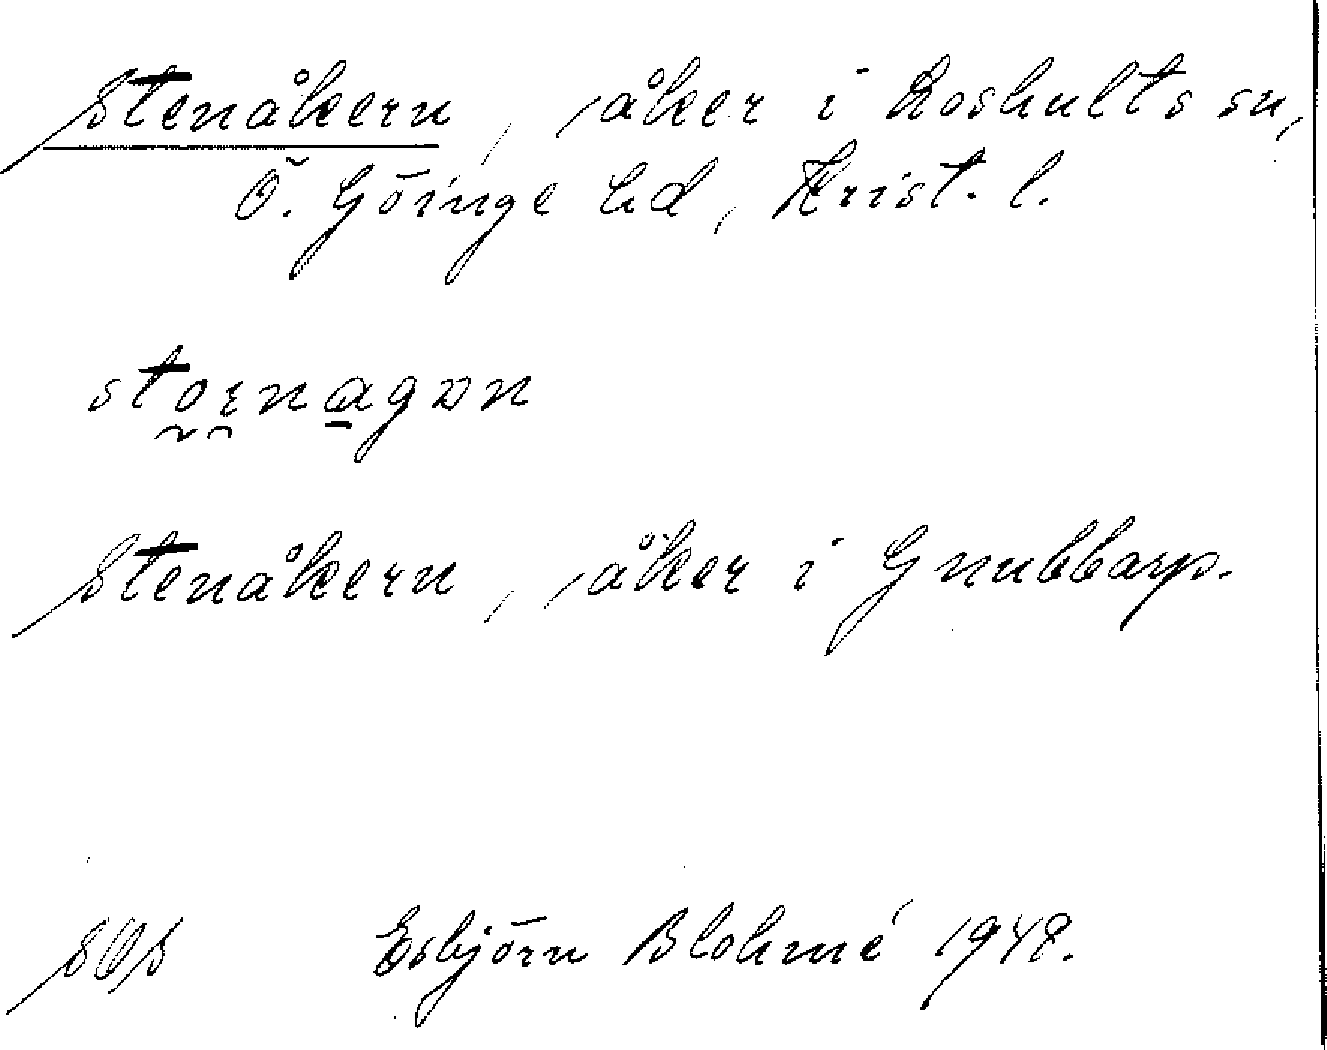 Stenåkern, åker i Loshults sn,
Ö. Göinge hd, Krist. l.
Stenåkern, åker i Gnubbarp.
Esbjörn Blohmé 1948.